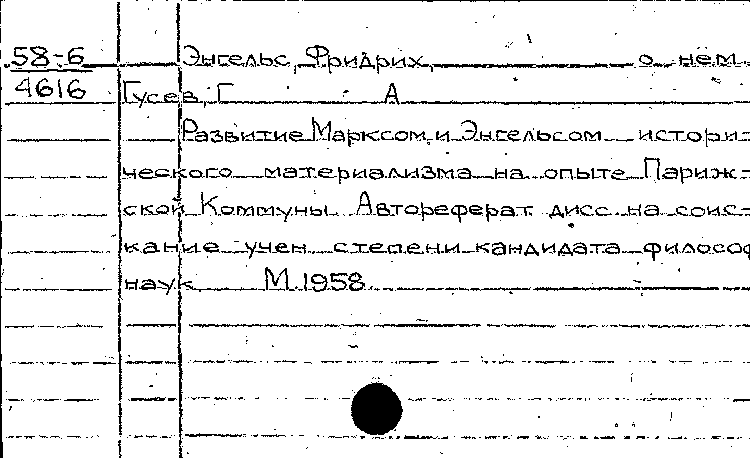 58-6 Энгельс, Фридрих, о нем.
4616 Гусев, Г. А
Развитие Марксом и Энгельсом истори-
ческого материализма на опыте Париж-
ской Коммуны. Автореферат дисс. на соис-
кание учен. степени кандидата философ
наук М. 1958.